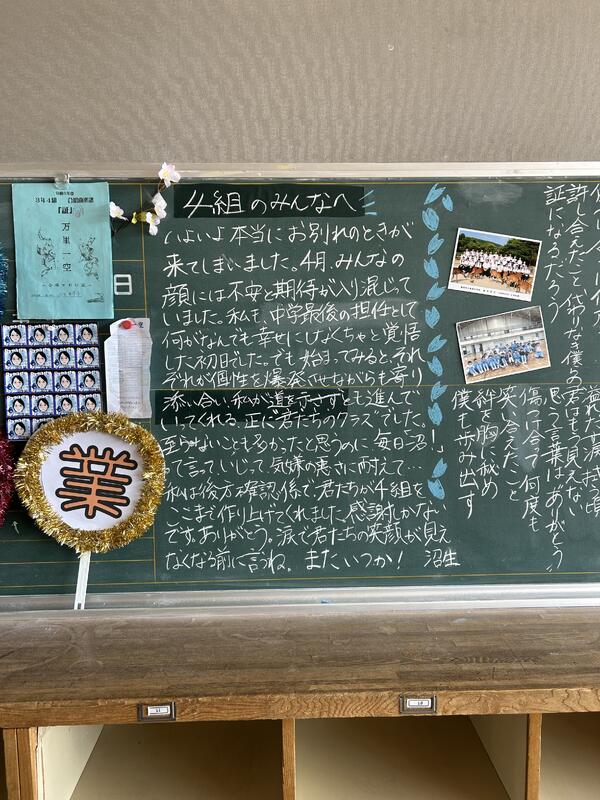 3年4組
万里一空
日
業
4組のみんなへ
いよいよ本当にお別れのときが
来てしまいました。4月、みんなの
顔には不安と期待が入り混じって
いました。私も、中学最後の担任として
何がなんでも幸せにしなくちゃと覚悟
した初日でした。でも始まってみると、それ
ぞれが個性を爆発させながらも寄り
添い合い、私が道を示さずとも進んで
いってくれる、正に"君たちのクラス"でした。
至らないことも多かったと思うのに毎日「沼!」
って言っていじって、気嫌の悪さに耐えて…
私は後方確認係で、君たちが4組を
ここまで作り上げてくれました。感謝しかない
です。ありがとう。涙で君たちの笑顔が見え
なくなる前に言うね。またいつか! 沼生
許し合えたこと 代わりな僕らの
証になるだろう
溢れた涙
君はもう見えない
思う言葉は"ありがとう"
傷つけ合って 何度も
笑い合えたこと
絆を胸に秘め
僕も歩み出す